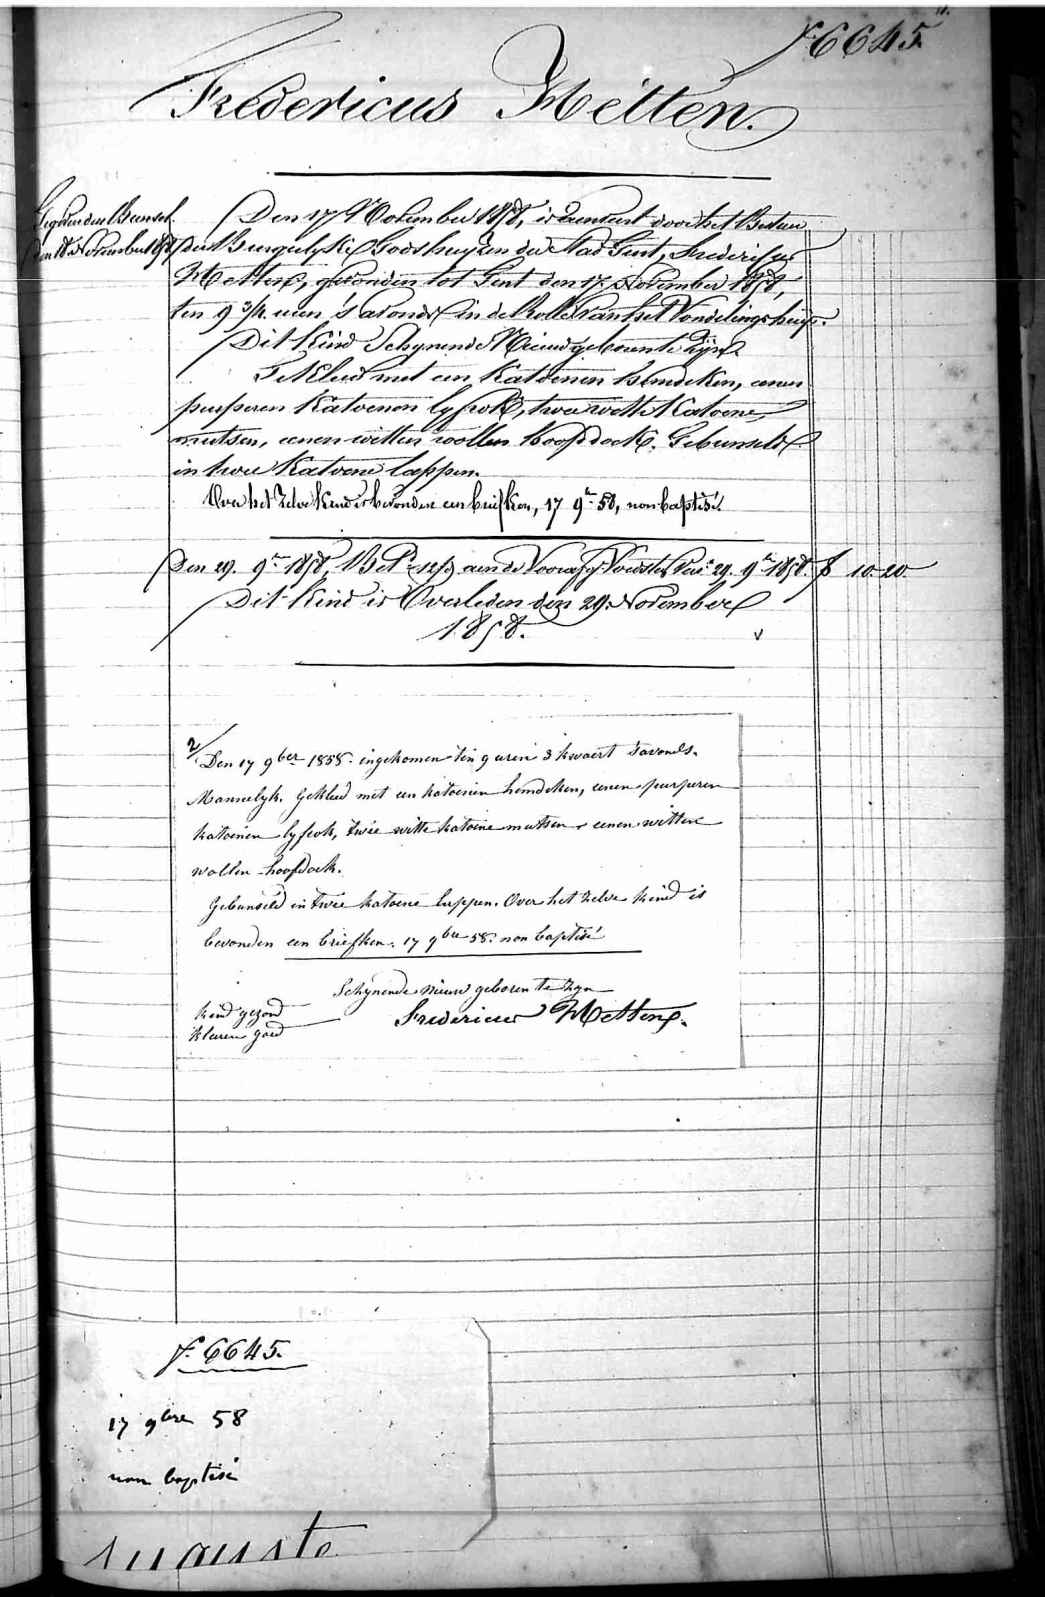 f° 6645.
Fredericus Metten.
Den 17 November 1858, is
den 18 November 1858 der Burgerlyke Godshuyzen der Stad Gent, Fredericus
Metten, gevonden tot Gent den 17 November 1858,
ten 9 3/4 uren 's avonds in de Rolle van het Vondelingshuys.
Dit kind Schynende Nieuwgeboren te Zyn.
Gekleed met een Katoenen hemdeken, eenen
purperen Katoenen lyfrok, twee witte Katoene
mutsen, eenen witten wollen hoofddoek. Gebunseld
in twee Katoene lappen.
Over het Zelve Kind is bevonden een briefken, 17 9re 58, non baptisé.
Den 29. 9re 1858, aen de Voedster 29. 9re 1858. f 10-20
Dit Kind is Overleden den 29. November
1858.
2/
Den 17 9ber 1858. ingekomen ten 9 uren 3 kwaert s'avonds.
Mannelyk. Gekleed met een katoenen hemdeken, eenen purperen
katoenen lyfrok, twee witte katoene mutsen, eenen witten
wollen hoofdoek.
Gebunseld in twee katoene lappen. Over het zelve kind is
bevonden een briefken. 17 9bre 58. non baptisé
Schynende nieuw geboren te Zyn
kind gezond
kleuren goed
Fredericus Metten.
f° 6645.
17 9bre 58
non baptisé
auguste